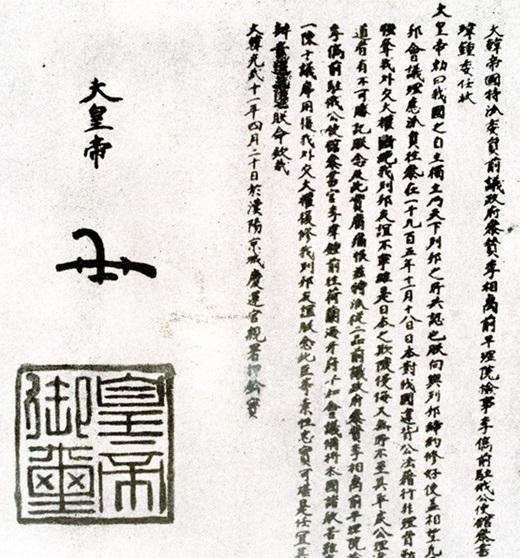 大韓帝國特派委員前議政府參贊李相卨前平理院檢事李儁前駐俄公使館參書
瑋鍾委任狀
大皇帝勅曰我國之自主獨立乃天下列邦之所共認也朕向與列邦締約修好使蓋相望凡
邦會議理應派員往參在一千九百五年十一月十八日日本對我國違背公法行非理脅迫
強奪我外交大權斷絶我列邦友誼不寧惟是日本之欺陵侵侮又無所不至其乖戾公理
道者有不可勝記朕念及此實屬痛恨玆特派從二品前議政府參贊李相卨前平理院檢
李儁前駐俄公使館參書官李瑋鍾前往荷蘭海牙府平和會議備將本國諸般苦難
一陳于議席用復我外交大權復修我列邦友誼朕念此臣等素性忠實可堪是任宜其
辦朕命欽哉
大韓光武十一年四月二十日於漢陽京城慶運宮親署押鈐寶
大皇帝
皇帝
御璽